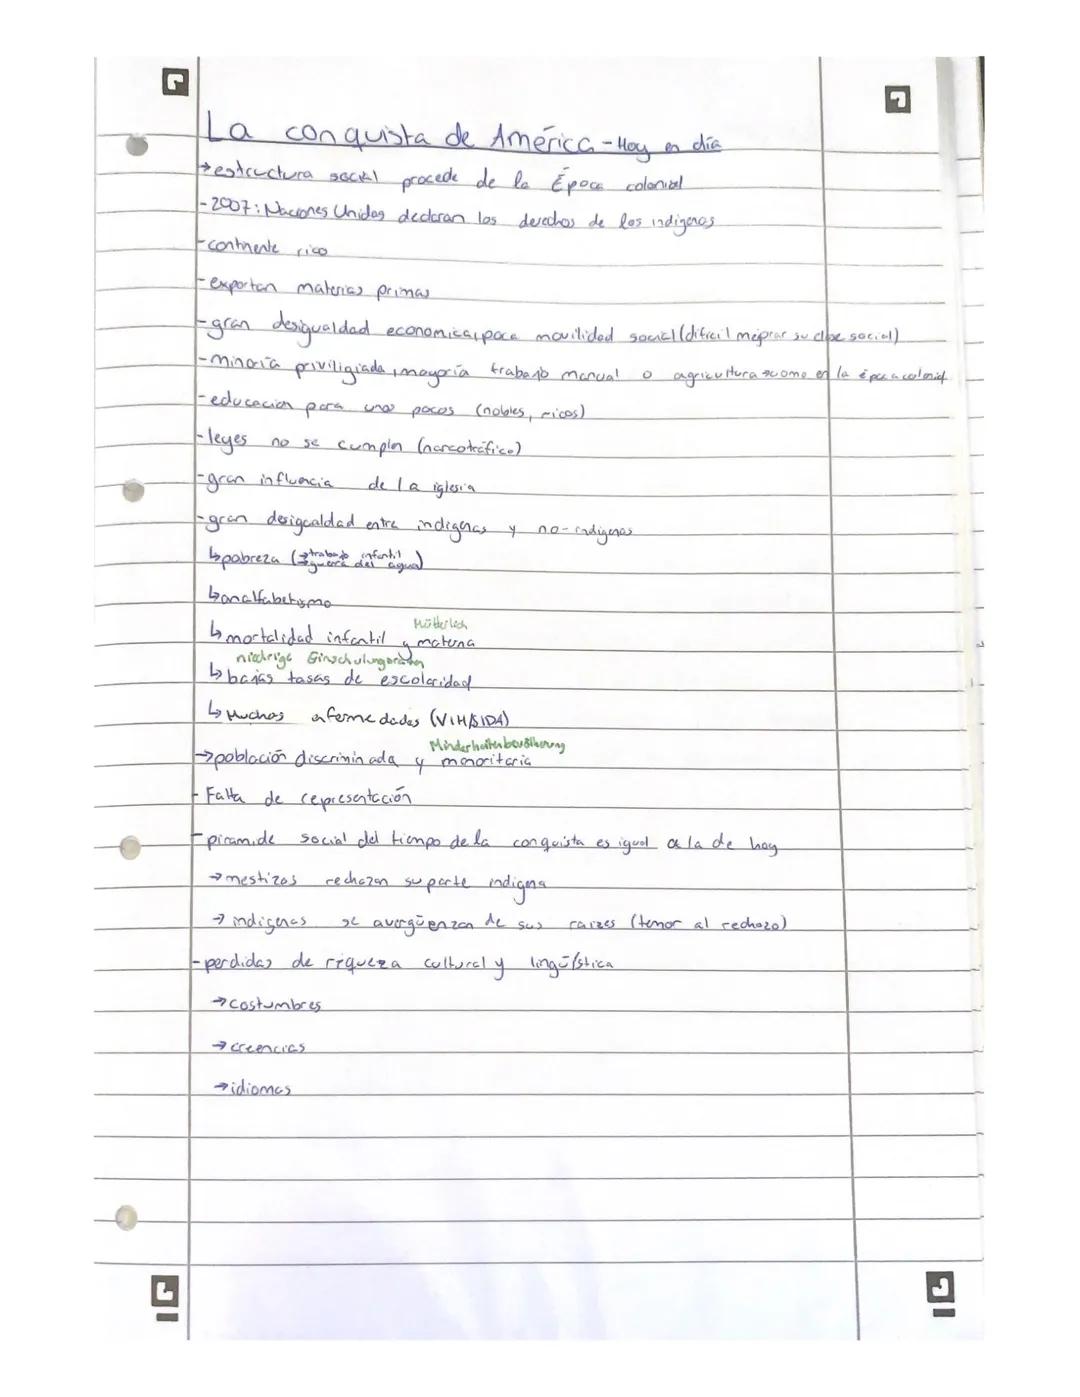 La conquista de América - Hoy en día
→ estructura social procede de la Época colonial
- 2007: Naciones Unidas declaran los derechos de los indígenas
- continente rico
- exportan materias primas
- gran desigualdad economica, poca movilidad social (dificil mejorar su clase social)
- minoría priviligiada, mayoría trabajo manual o agricultura → como en la época colonial
- educacion para unos pocos (nobles, ricos)
- leyes no se cumplen (narcotráfico)
- gran influencia de la iglesia
- gran desigualdad entre indígenas y no-indígenas
↳ pobreza (→ trabajo infantil
→ guerra del agua)
↳ analfabetismo
Mütterlich
↳ mortalidad infantil y materna
niedrige Einschulungsraten
↳ bajas tasas de escolaridad
↳ Muchas enfermedades (VIH/SIDA)
Minderheitenbevölkerung
→ población discriminada y minoritaria
- Falta de representación
- piramide social del tiempo de la conquista es igual a la de hoy
→ mestizos rechazan su parte indígena
→ indígenas se avergüenzan de sus raizes (temor al rechazo)
- perdidas de riqueza cultural y lingüística
→ costumbres
→ creencias
→ idiomas